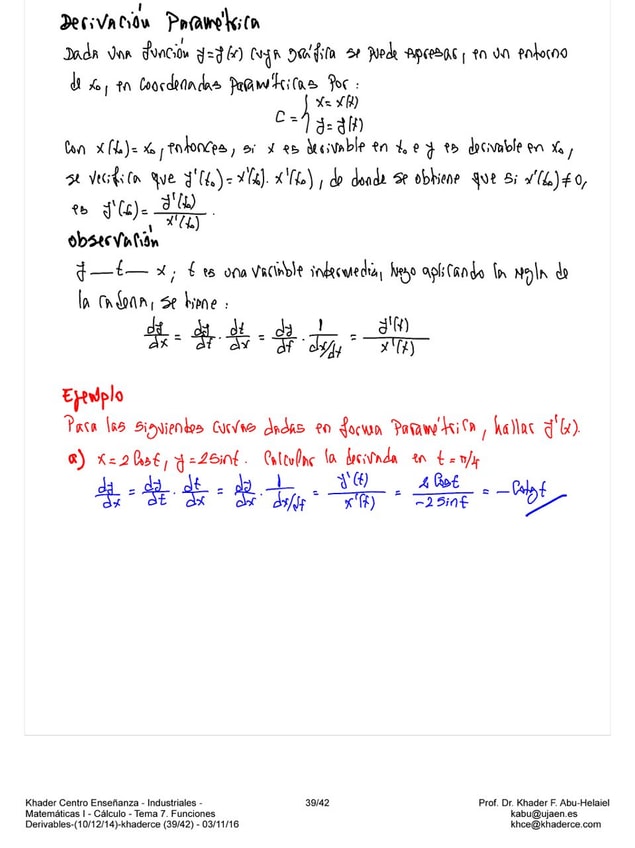 Derivación Paramétrica
Dada una función y=y(x) cuya gráfica se puede expresar, en un entorno
de x₀, en coordenadas paramétricas por:
C = { x = x(t)
y = y(t)
Con x(t₀) = x₀, entonces, si x es derivable en t₀ e y es derivable en x₀,
se verifica que y'(t₀) = y'(x₀). x'(t₀), de donde se obtiene que si x'(t₀) ≠ 0,
es y'(x₀) = y'(t₀) / x'(t₀).
Observación
y — t — x; t es una variable intermedia, luego aplicando la regla de
la cadena, se tiene:
dy/dx = dy/dt · dt/dx = dy/dt · 1/(dx/dt) = y'(t)/x'(t)
Ejemplo
Para las siguientes curvas dadas en forma paramétrica, hallar y'(x).
a) x = 2 Cost, y = 2 Sint. Calcular la derivada en t = π/4
dy/dx = dy/dt · dt/dx = dy/dx · 1/(dx/dt) = y'(t)/x'(t) = 2 Cost / -2 Sint = - Cotg t
Khader Centro Enseñanza - Industriales -
Matemáticas I - Cálculo - Tema 7. Funciones
Derivables-(10/12/14)-khaderce (39/42) - 03/11/16
39/42
Prof. Dr. Khader F. Abu-Helaiel
kabu@ujaen.es
khce@khaderce.com